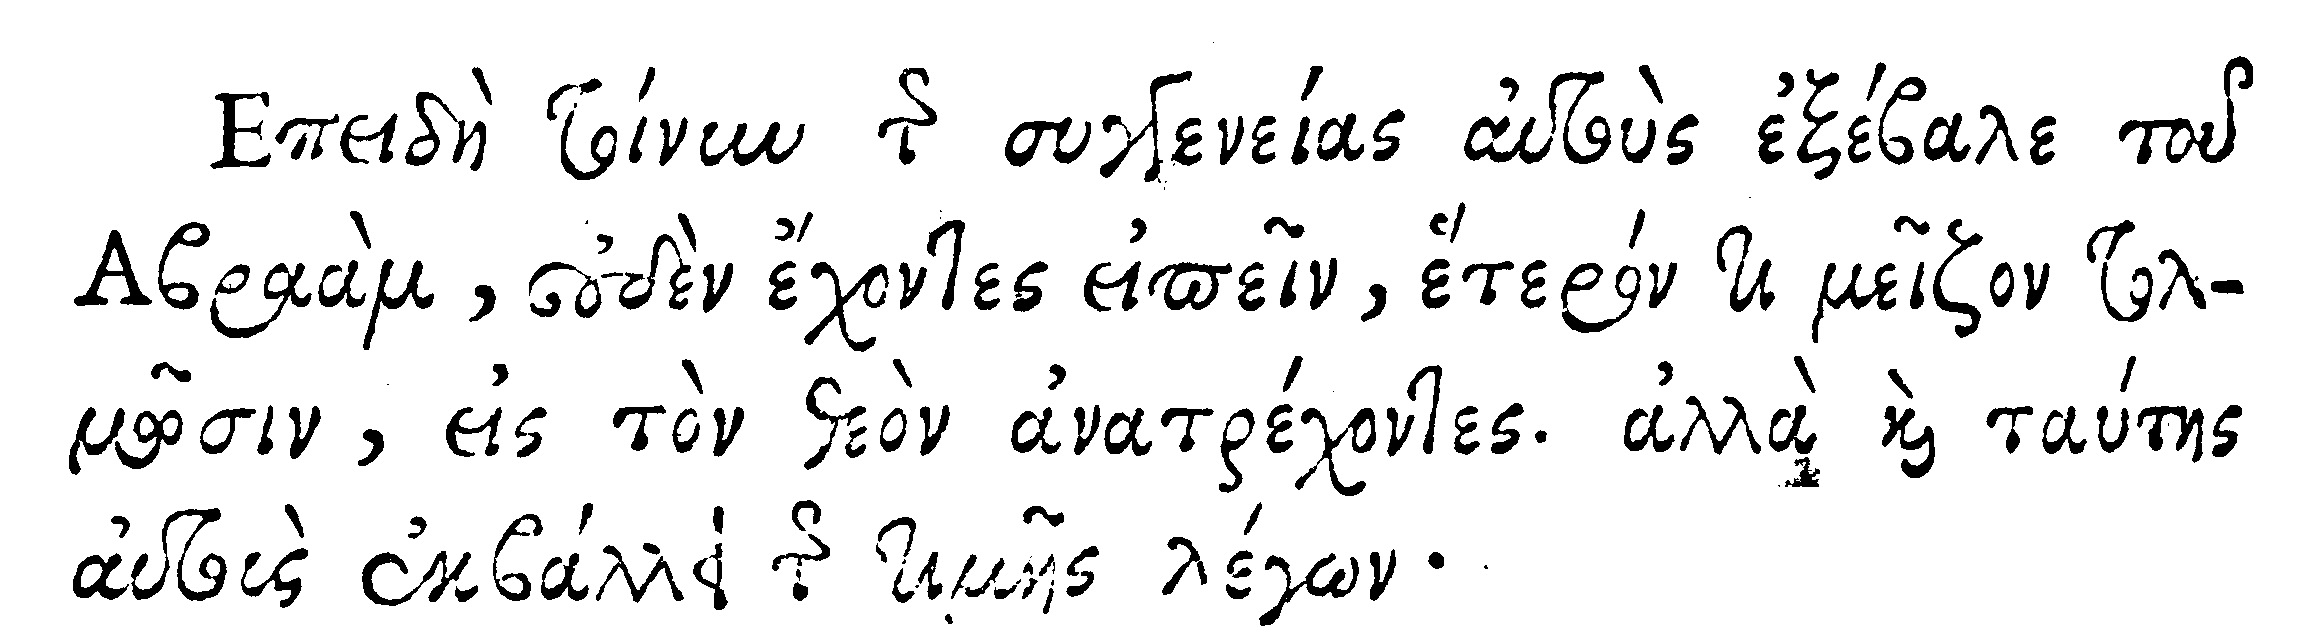 Ἐπειδὴ τοίνυν τῆς συγγενείας αὐτοὺς ἐξέβαλε τοῦ
Ἀβραὰμ, οὐδὲν ἔχοντες εἰπεῖν, ἕτερόν τι μεῖζον τολ-
μῶσιν, εἰς τὸν θεὸν ἀνατρέχοντες. ἀλλὰ καὶ ταύτης
αὐτοὺς ἐκβάλλει τῆς τιμῆς λέγων·